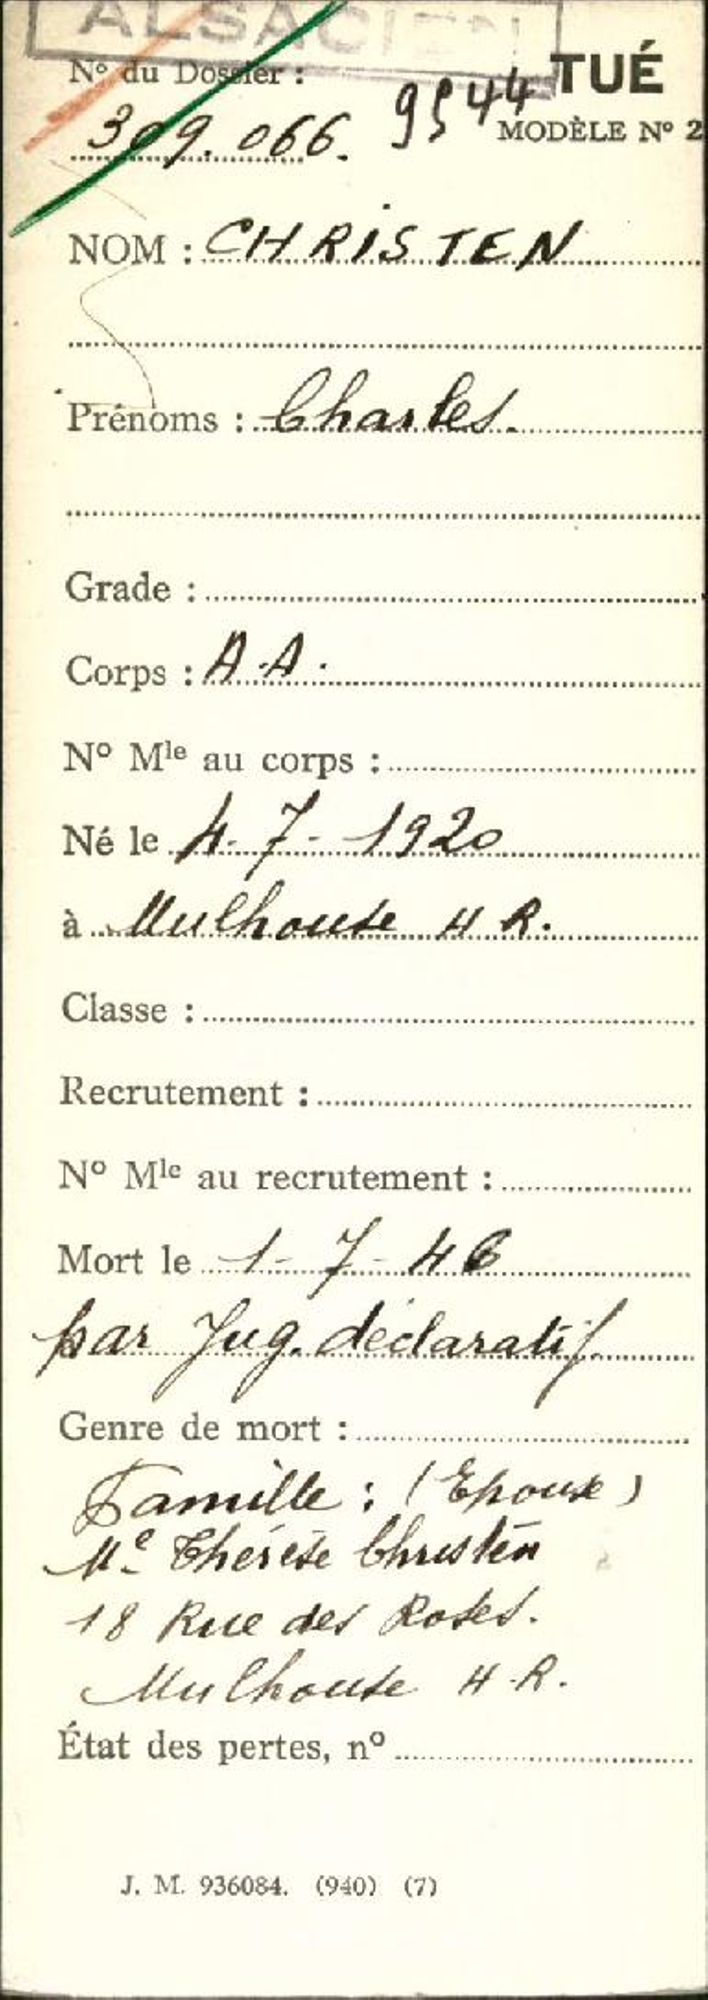 ALSACIEN
N° du Dossier :
309.066. 9544 TUÉ
MODÈLE N° 2
NOM : CHRISTEN
Prénoms : Charles.
Grade :
Corps : A.A.
N° Mle au corps :
Né le 4-7-1920
à Mulhouse H R.
Classe :
Recrutement :
N° Mle au recrutement :
Mort le 1-7-46
par Jug. déclaratif.
Genre de mort :
Famille : (Epouse)
Me Thérèse Christen
18 Rue des Roses.
Mulhouse H.R.
État des pertes, n°
J. M. 936084. (940) (7)